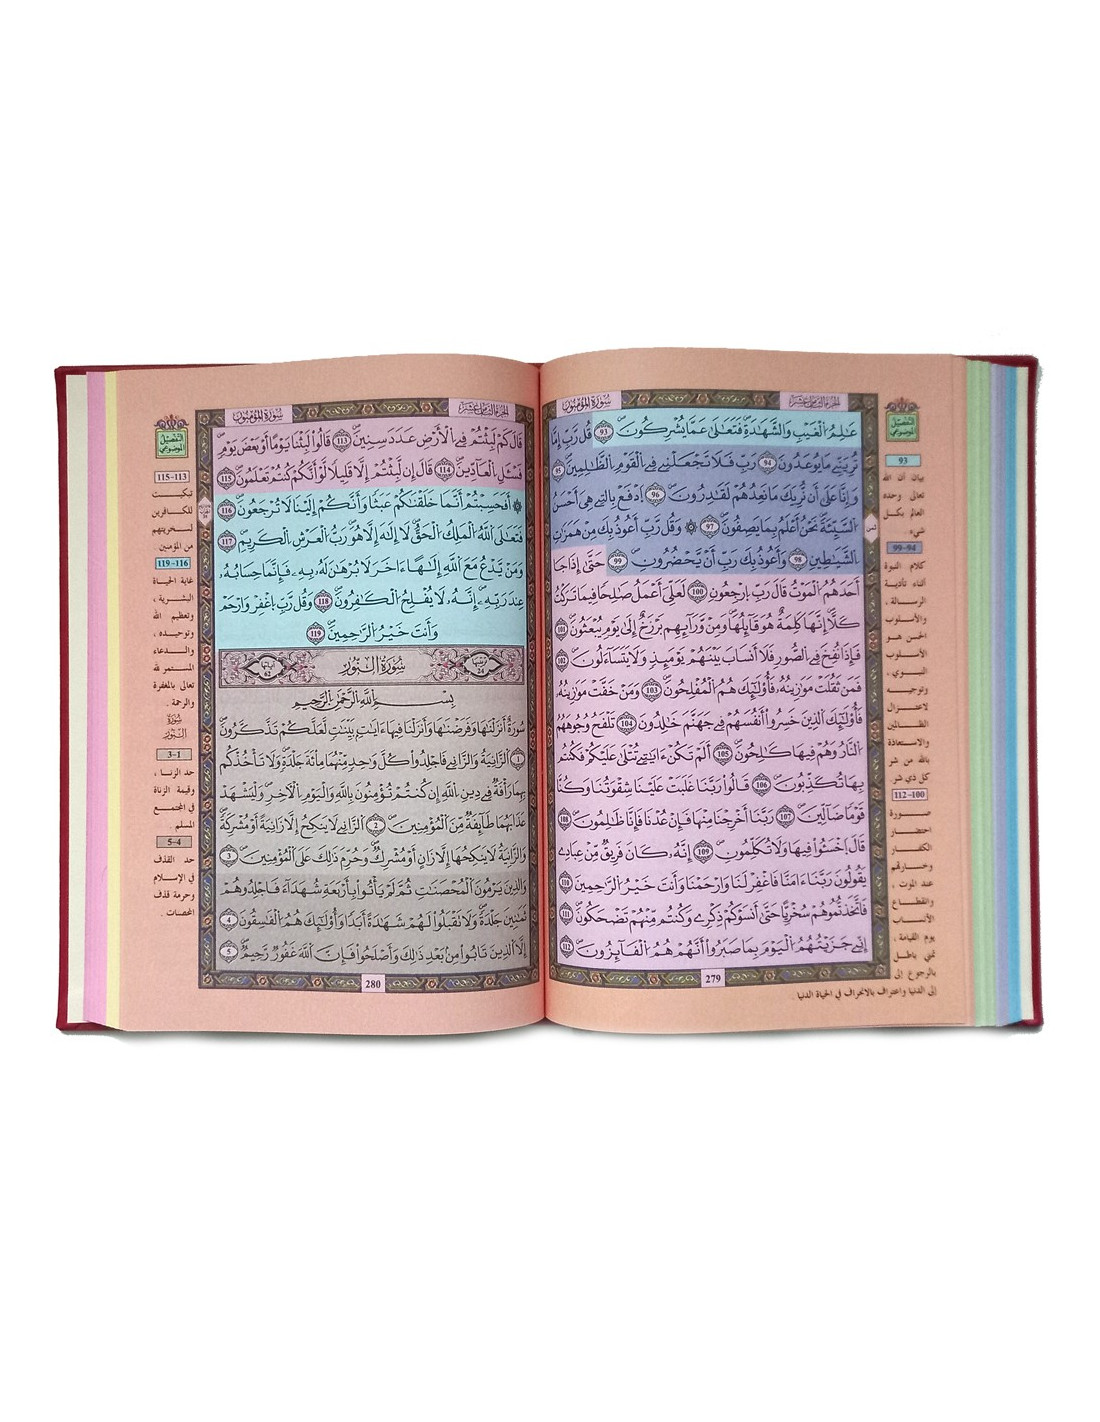 الجزء الثامن عشر
سورة المؤمنون
عَٰلِمُ الْغَيْبِ وَالشَّهَٰدَةِ فَتَعَٰلَىٰ عَمَّا يُشْرِكُونَ 93 قُل رَّبِّ إِمَّا
تُرِيَنِّے مَا يُوعَدُونَ 94 رَبِّ فَلَا تَجْعَلْنِے فِے الْقَوْمِ الظَّٰلِمِينَ 95
وَإِنَّا عَلَىٰ أَن نُّرِيَكَ مَا نَعِدُهُمْ لَقَٰدِرُونَ 96 اَدْفَعْ بِالتِے هِيَ أَحْسَنُ
السَّيِّئَةَ نَحْنُ أَعْلَمُ بِمَا يَصِفُونَ 97 ۞ وَقُل رَّبِّ أَعُوذُ بِكَ مِنْ هَمَزَٰتِ
الشَّيَٰطِينِ 98 وَأَعُوذُ بِكَ رَبِّ أَنْ يَّحْضُرُونِ 99 حَتَّىٰ إِذَا جَا
أَحَدَهُمُ الْمَوْتُ قَالَ رَبِّ ارْجِعُونِ 100 لَعَلِّيَ أَعْمَلُ صَٰلِحاً فِيمَا تَرَكْتُ
كَلَّا إِنَّهَا كَلِمَةٌ هُوَ قَآئِلُهَا وَمِنْ وَّرَآئِهِم بَرْزَخٌ إِلَىٰ يَوْمِ يُبْعَثُونَ 101
فَإِذَا نُفِخَ فِے الصُّورِ فَلَا أَنسَابَ بَيْنَهُمْ يَوْمَئِذٍ وَلَا يَتَسَآءَلُونَ 102
فَمَن ثَقُلَتْ مَوَٰزِينُهُۥ فَأُوْلَٰٓئِكَ هُمُ الْمُفْلِحُونَ 103 وَمَنْ خَفَّتْ مَوَٰزِينُهُۥ
فَأُوْلَٰٓئِكَ الَّذِينَ خَسِرُواْ أَنفُسَهُمْ فِے جَهَنَّمَ خَٰلِدُونَ 104 تَلْفَحُ وُجُوهَهُمُ
النَّارُ وَهُمْ فِيهَا كَٰلِحُونَ 105 أَلَمْ تَكُنَ اٰيَٰتِے تُتْلَىٰ عَلَيْكُمْ فَكُنتُم
بِهَا تُكَذِّبُونَ 106 قَالُواْ رَبَّنَا غَلَبَتْ عَلَيْنَا شِقْوَتُنَا وَكُنَّا
قَوْماً ضَآلِّينَ 107 رَبَّنَا أَخْرِجْنَا مِنْهَا فَإِنْ عُدْنَا فَإِنَّا ظَٰلِمُونَ 108
قَالَ اَخْسَـُٔواْ فِيهَا وَلَا تُكَلِّمُونِ 109 إِنَّهُۥ كَانَ فَرِيقٌ مِّنْ عِبَادِے
يَقُولُونَ رَبَّنَا ءَامَنَّا فَاغْفِرْ لَنَا وَارْحَمْنَا وَأَنتَ خَيْرُ الرَّٰحِمِينَ 110
فَاتَّخَذتُّمُوهُمْ سُخْرِيّاً حَتَّىٰ أَنسَوْكُمْ ذِكْرِے وَكُنتُم مِّنْهُمْ تَضْحَكُونَ 111
إِنِّے جَزَيْتُهُمُ الْيَوْمَ بِمَا صَبَرُواْ أَنَّهُمْ هُمُ الْفَآئِزُونَ 112
279
ثمن
التفصيل
الموضوعي
93
بيان أن الله
تعالى وحده
العالم بكل
شيء
99-94
كلام النبوة
أثناء تأدية
الرسالة ،
والأسلوب
الحسن هو
الأسلوب
النبوي ،
وتوجيه
لاعتزال
الظالمين
والاستعاذة
بالله من شر
كل ذي شر
112-100
صورة
احتضار
الكفار
وخسارتهم
عند الموت ،
وانقطاع
الأنساب
يوم القيامة ،
تمني باطل
بالرجوع إلى
إلى الدنيا واعتراف بالانحراف في الحياة الدنيا .
سورة المؤمنون
الجزء الثامن عشر
قَٰلَ كَمْ لَبِثْتُمْ فِے الْأَرْضِ عَدَدَ سِنِينَ 113 قَالُواْ لَبِثْنَا يَوْماً أَوْ بَعْضَ يَوْمٍ
فَسْـَٔلِ الْعَآدِّينَ 114 قَٰلَ إِن لَّبِثْتُمْ إِلَّا قَلِيلاً لَّوْ أَنَّكُمْ كُنتُمْ تَعْلَمُونَ 115
۞ أَفَحَسِبْتُمْ أَنَّمَا خَلَقْنَٰكُمْ عَبَثاً وَأَنَّكُمْ إِلَيْنَا لَا تُرْجَعُونَ 116
فَتَعَٰلَى اللَّهُ الْمَلِكُ الْحَقُّ لَا إِلَٰهَ إِلَّا هُوَ رَبُّ الْعَرْشِ الْكَرِيمِ 117
وَمَنْ يَّدْعُ مَعَ اللَّهِ إِلَٰهاً ءَاخَرَ لَا بُرْهَٰنَ لَهُۥ بِهِۦ فَإِنَّمَا حِسَابُهُۥ
عِندَ رَبِّهِۦ إِنَّهُۥ لَا يُفْلِحُ الْكَٰفِرُونَ 118 وَقُل رَّبِّ اغْفِرْ وَارْحَمْ
وَأَنتَ خَيْرُ الرَّٰحِمِينَ 119
ترتيبها 24
سورة النور
آياتها 62
بِسْمِ اللَّهِ الرَّحْمَٰنِ الرَّحِيمِ
سُورَةٌ أَنزَلْنَٰهَا وَفَرَضْنَٰهَا وَأَنزَلْنَا فِيهَا ءَايَٰتٍ بَيِّنَٰتٍ لَّعَلَّكُمْ تَذَّكَّرُونَ
1 اَلزَّانِيَةُ وَالزَّانِے فَاجْلِدُواْ كُلَّ وَٰحِدٍ مِّنْهُمَا مِاْئَةَ جَلْدَةٍ وَلَا تَأْخُذْكُم
بِهِمَا رَأْفَةٌ فِے دِينِ اللَّهِ إِن كُنتُمْ تُؤْمِنُونَ بِاللَّهِ وَالْيَوْمِ الْأَخِرِ وَلْيَشْهَدْ
عَذَابَهُمَا طَآئِفَةٌ مِّنَ الْمُؤْمِنِينَ 2 اَلزَّانِے لَا يَنكِحُ إِلَّا زَانِيَةً أَوْ مُشْرِكَةً
وَالزَّانِيَةُ لَا يَنكِحُهَا إِلَّا زَانٍ أَوْ مُشْرِكٌ وَحُرِّمَ ذَٰلِكَ عَلَى الْمُؤْمِنِينَ 3
وَالذِينَ يَرْمُونَ الْمُحْصَنَٰتِ ثُمَّ لَمْ يَأْتُواْ بِأَرْبَعَةِ شُهَدَآءَ فَاجْلِدُوهُمْ
ثَمَٰنِينَ جَلْدَةً وَلَا تَقْبَلُواْ لَهُمْ شَهَٰدَةً أَبَداً وَأُوْلَٰٓئِكَ هُمُ الْفَٰسِقُونَ 4
إِلَّا الَّذِينَ تَابُواْ مِنۢ بَعْدِ ذَٰلِكَ وَأَصْلَحُواْ فَإِنَّ اللَّهَ غَفُورٌ رَّحِيمٌ 5
280
التفصيل
الموضوعي
115-113
تبكيت
للكافرين
لسخريتهم
من المؤمنين .
119-116
غاية الحياة
البشرية ،
وتعظيم الله
وتوحيده ،
والدعاء
المستمر لله
تعالى بالمغفرة
والرحمة .
سورة
النور
3-1
حد الزنا ،
وقيمة الزناة
في المجتمع
المسلم .
5-4
حد القذف
في الإسلام
وحرمة قذف
المحصنات .